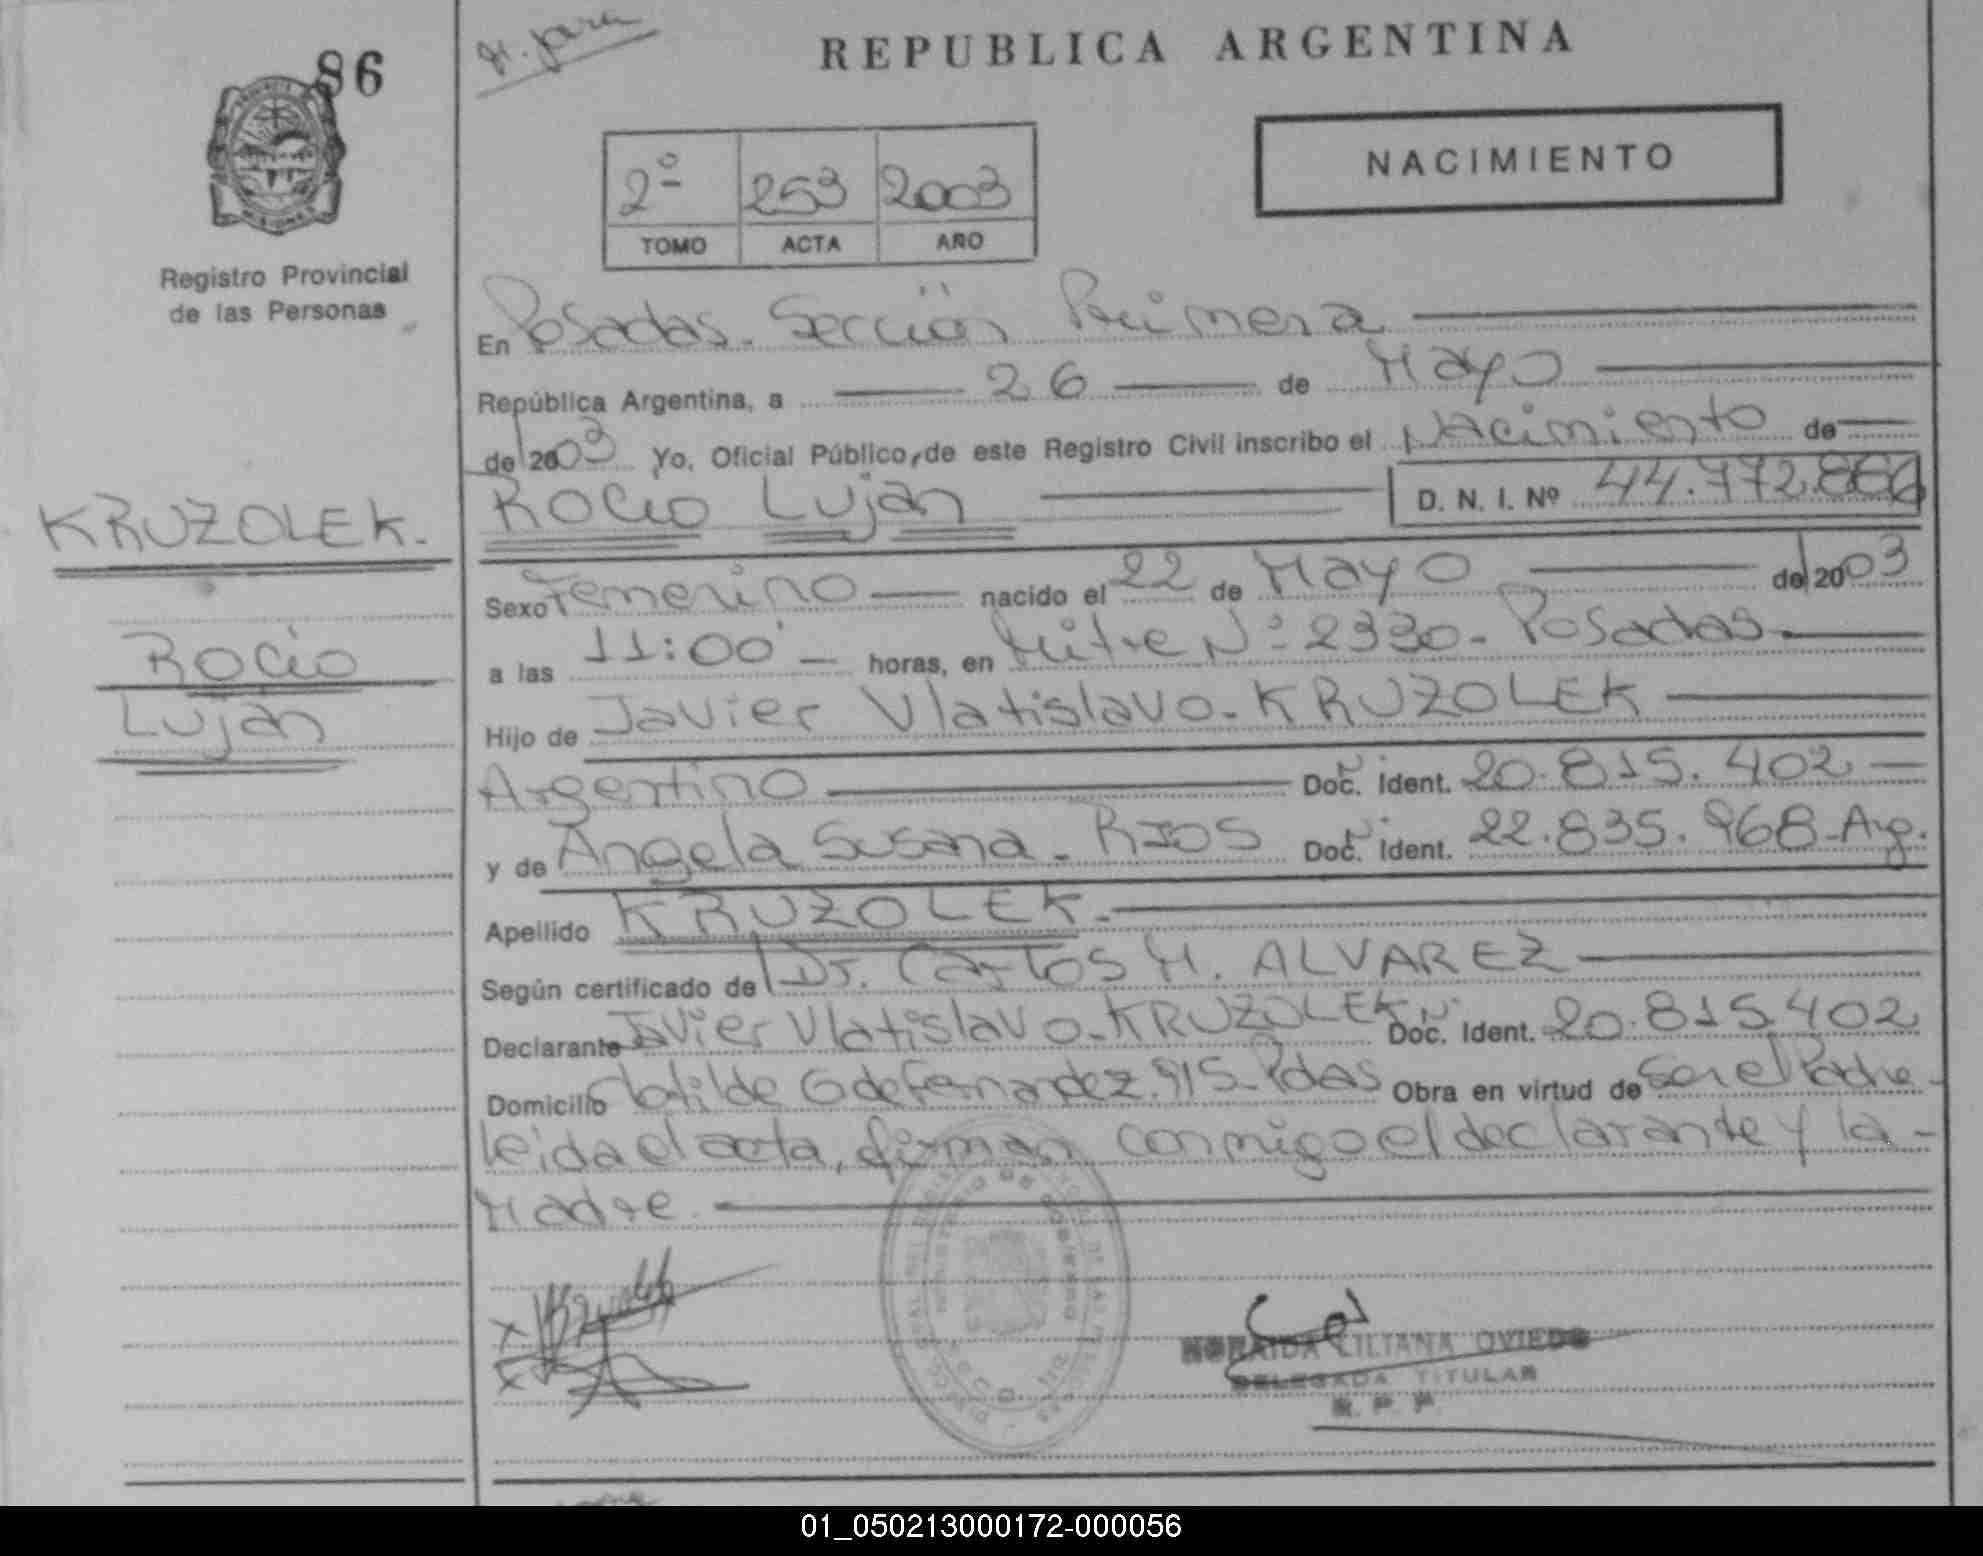 86
REPUBLICA ARGENTINA
2º 253 2003
TOMO ACTA AÑO
NACIMIENTO
Registro Provincial
de las Personas
En Posadas. Sección Primera
República Argentina, a 26 de Mayo
de 2003 Yo, Oficial Público, de este Registro Civil inscribo el Nacimiento de
KRUZOLEK.
Rocío Luján D. N. I. Nº 44.772.886
Sexo Femenino nacido el 22 de Mayo de 2003
Rocío
Luján
a las 11:00 horas, en Mitre Nº 2330- Posadas
Hijo de Javier Vlatislavo-KRUZOLEK
Argentino Doc. Ident. 20.815.402
y de Angela Susana- RIOS Doc. Ident. 22.835.968-Arg.
Apellido KRUZOLEK-
Según certificado de Dr. Carlos H. ALVAREZ
Declarante Javier Vlatislavo-KRUZOLEK Doc. Ident. 20.815.402
Domicilio Clotilde G de Fernandez 915-Pdas Obra en virtud de ser el Padre-
leida el acta, firman conmigo el declarante y la-
Madre.
LILIANA OVIEDO
DELEGADA TITULAR
R. P. P
01_050213000172-000056